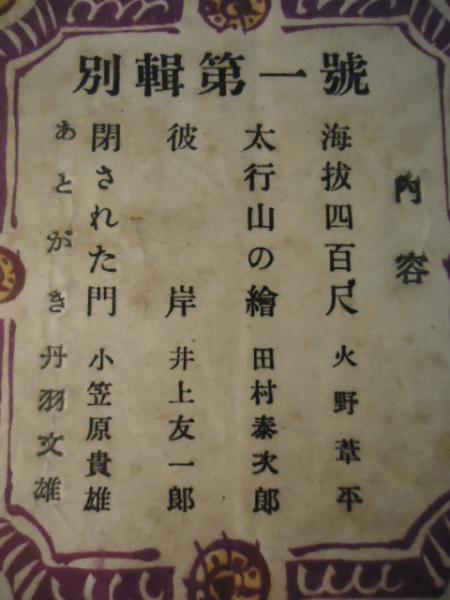 號一第輯別
內容
海拔四百尺 火野葦平
太行山の繪 田村泰次郎
彼岸 井上友一郎
閉された門 小笠原貴雄
あとがき 丹羽文雄